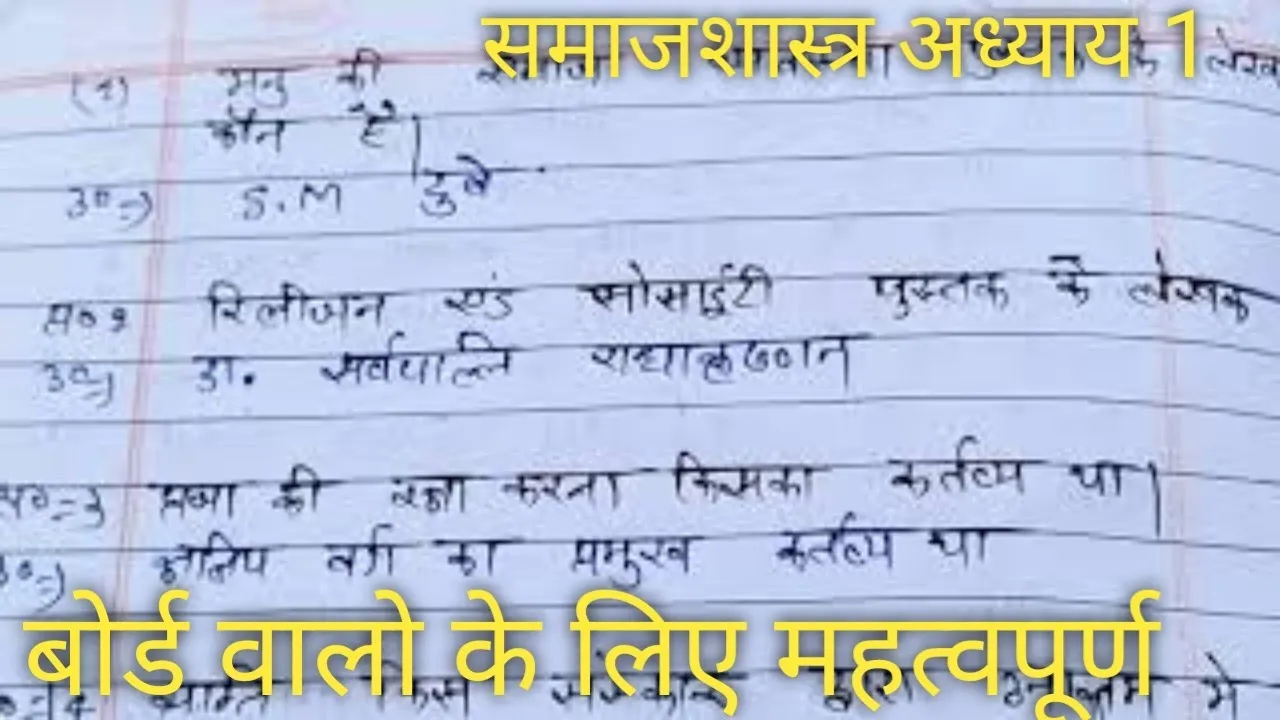 समाजशास्त्र अध्याय 1
(1) मनु की के लेखक
कौन है।
उ०-) S.M दुबे
प्र० २ रिलीजन एंड सोसाईटी पुस्तक के लेखक
उ०-) डा. सर्वपाल्लि राधाकृष्णन
प्र०-3 प्रजा की रक्षा करना किसका कर्तव्य था।
उ०-) क्षत्रिय वर्ग का प्रमुख कर्तव्य था
बोर्ड वालो के लिए महत्वपूर्ण
व्यक्ति किस में